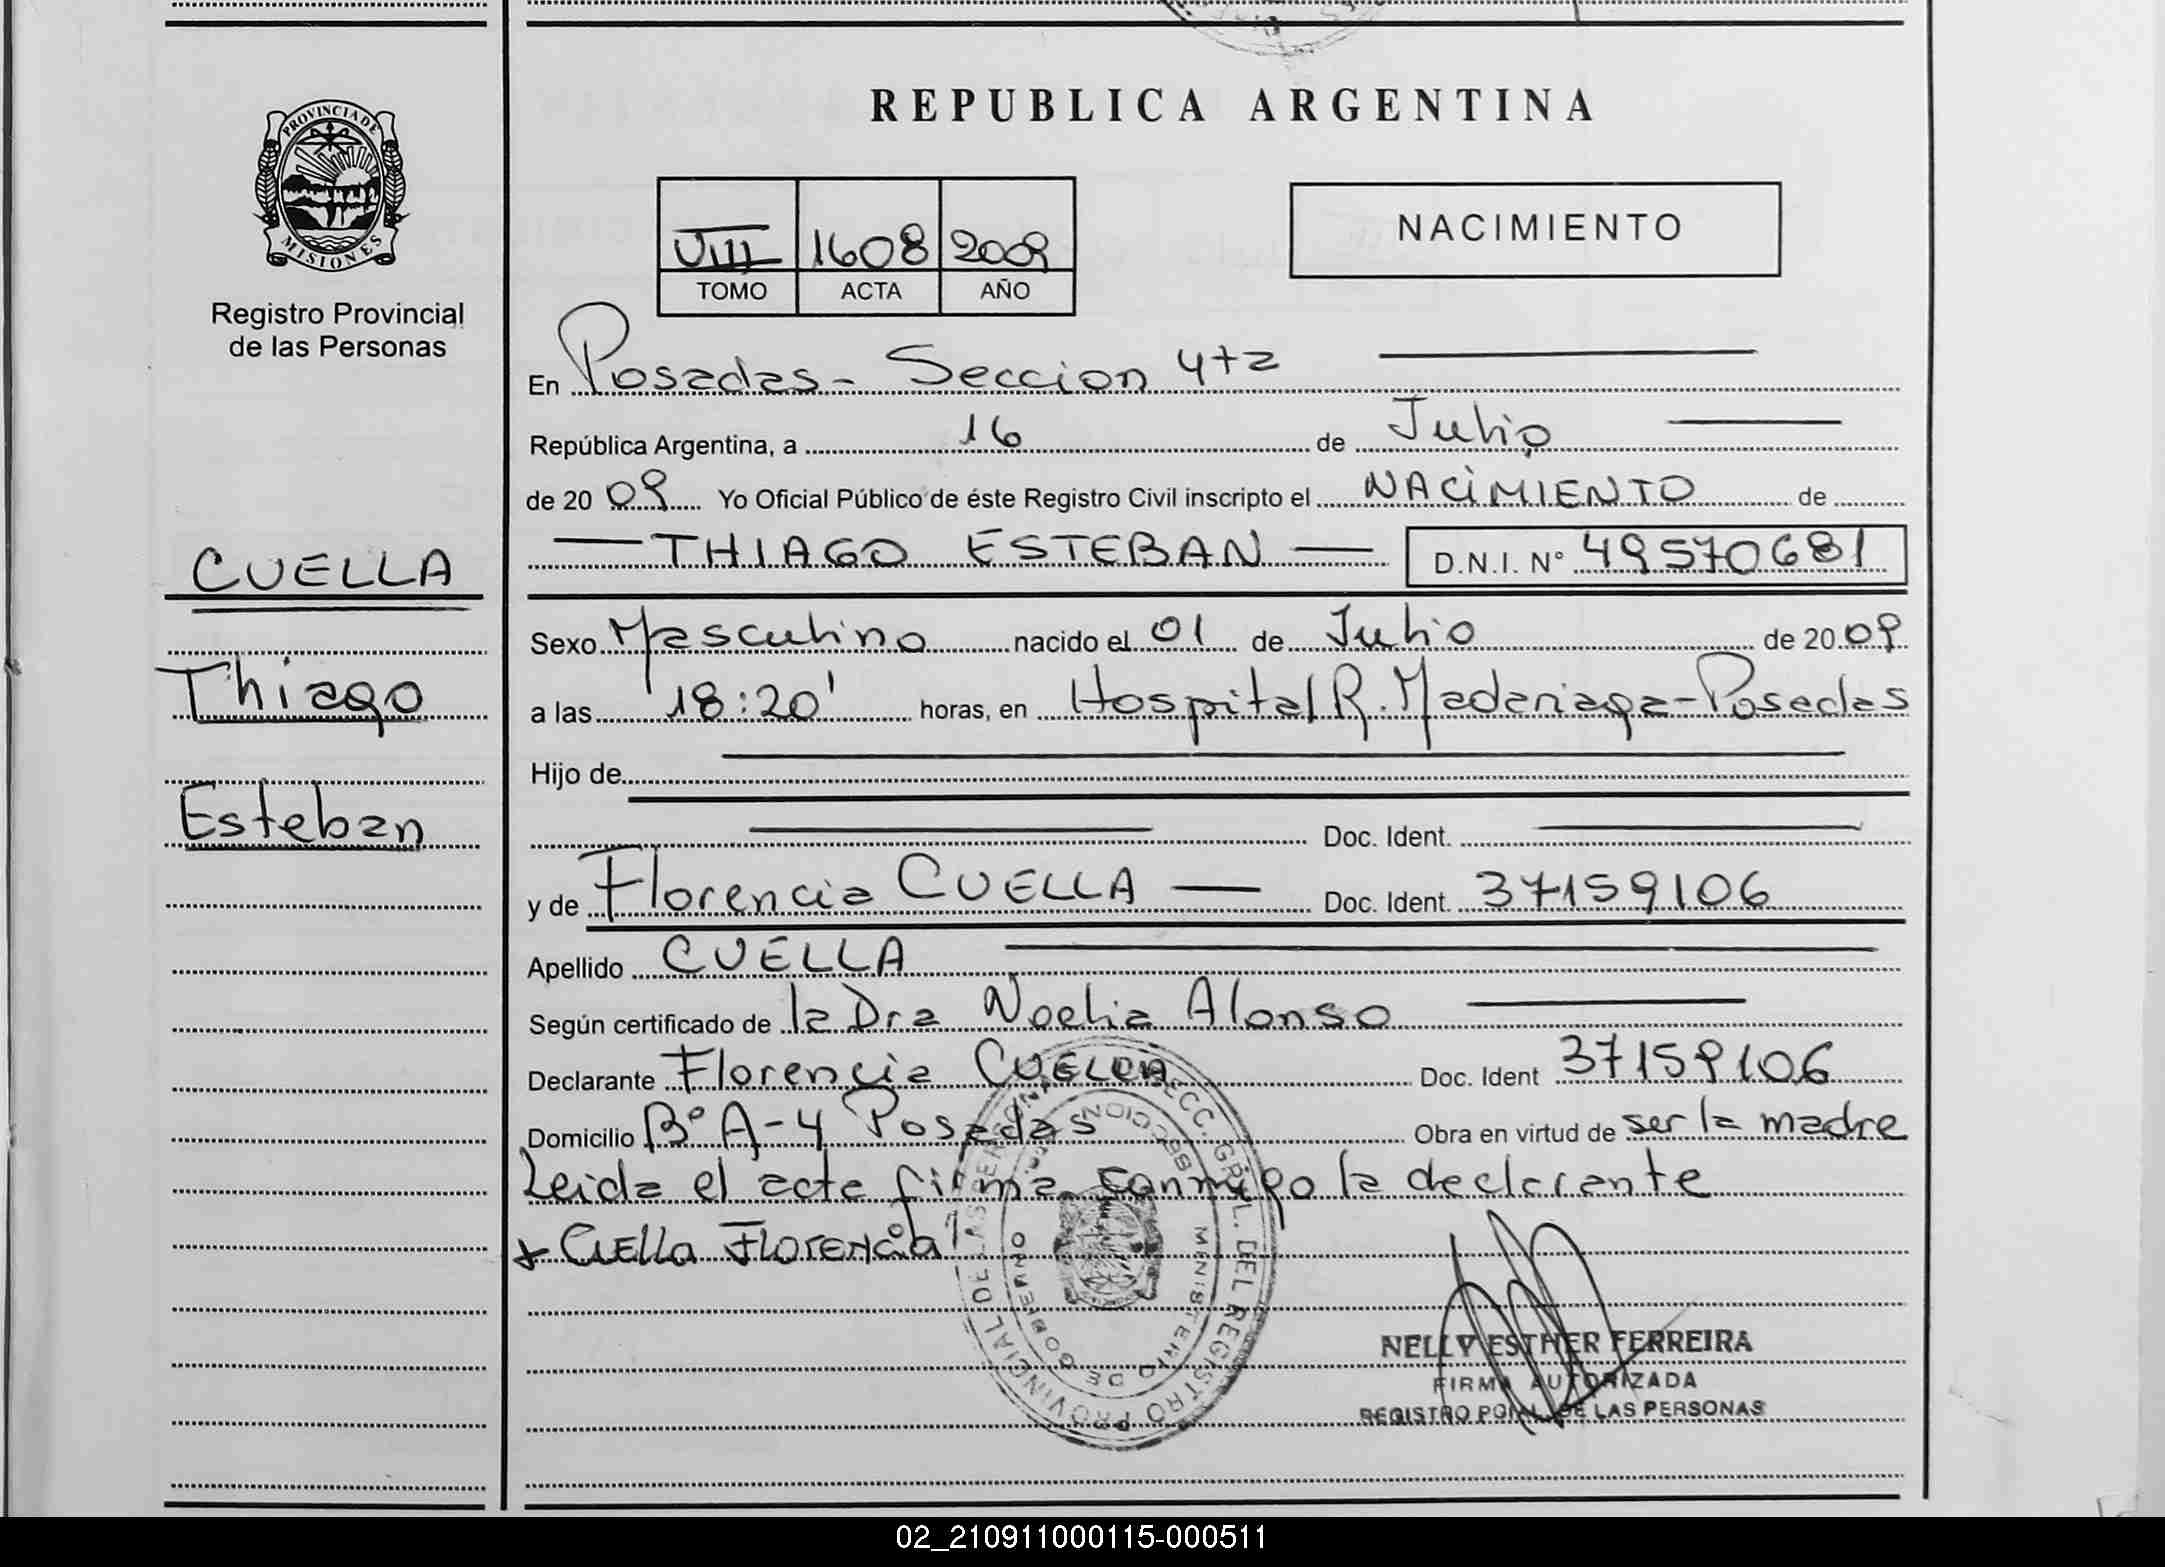 REPUBLICA ARGENTINA
PROVINCIA DE
MISIONES
Registro Provincial
de las Personas
VIII 1608 2009
TOMO ACTA AÑO
NACIMIENTO
En Posadas - Seccion 4ta
República Argentina, a 16 de Julio
de 20 09 Yo Oficial Público de éste Registro Civil inscripto el NACIMIENTO de
THIAGO ESTEBAN D.N.I. Nº 49570681
CUELLA
Thiago
Esteban
Sexo Masculino nacido el 01 de Julio de 20 09
a las 18:20' horas, en Hospital R. Madariaga - Posadas
Hijo de
Doc. Ident.
y de Florencia CUELLA Doc. Ident. 37159106
Apellido CUELLA
Según certificado de la Dra Noelia Alonso
Declarante Florencia CUELLA Doc. Ident 37159106
Domicilio Bº A-4 Posadas Obra en virtud de ser la madre
Leida el acta firma conmigo la declarante
+ Cuella Florencia
SECC. GRL. DEL REGISTRO PROVINCIAL DE LAS PERSONAS
MINISTERIO DE GOBIERNO
SECCION
NELLY ESTHER FERREIRA
FIRMA AUTORIZADA
REGISTRO PCIAL. DE LAS PERSONAS
02_210911000115-000511